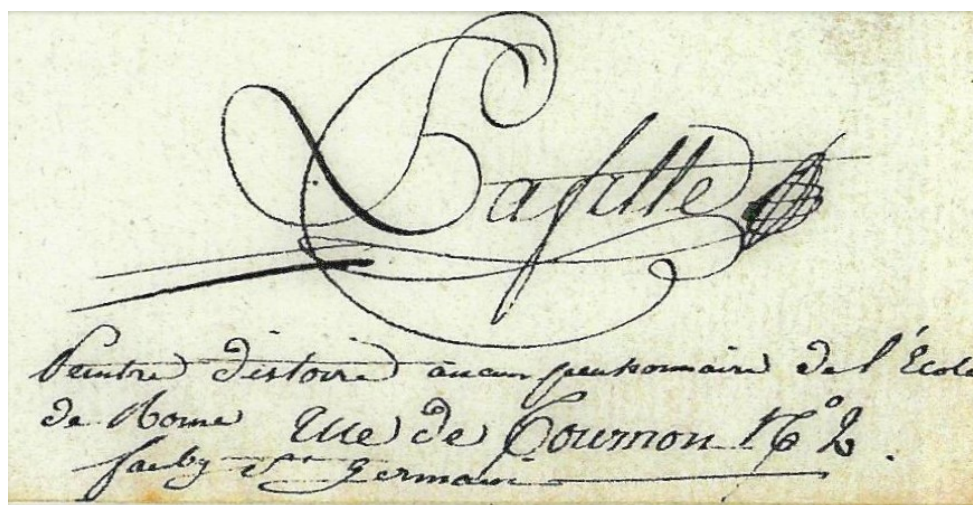 Lafitte
Peintre d'istoire ancien pensionnaire de l'École
de Rome rue de Tournon N° 2.
faubg St Germain